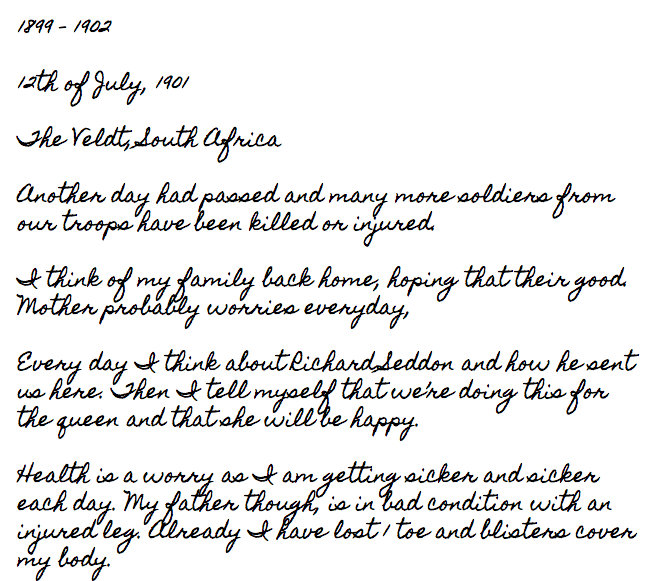 1899 - 1902
12th of July, 1901
The Veldt, South Africa
Another day had passed and many more soldiers from
our troops have been killed or injured.
I think of my family back home, hoping that their good.
Mother probably worries everyday,
Every day I think about Richard Seddon and how he sent
us here. Then I tell myself that we're doing this for
the queen and that she will be happy.
Health is a worry as I am getting sicker and sicker
each day. My father though, is in bad condition with an
injured leg. Already I have lost 1 toe and blisters cover
my body.